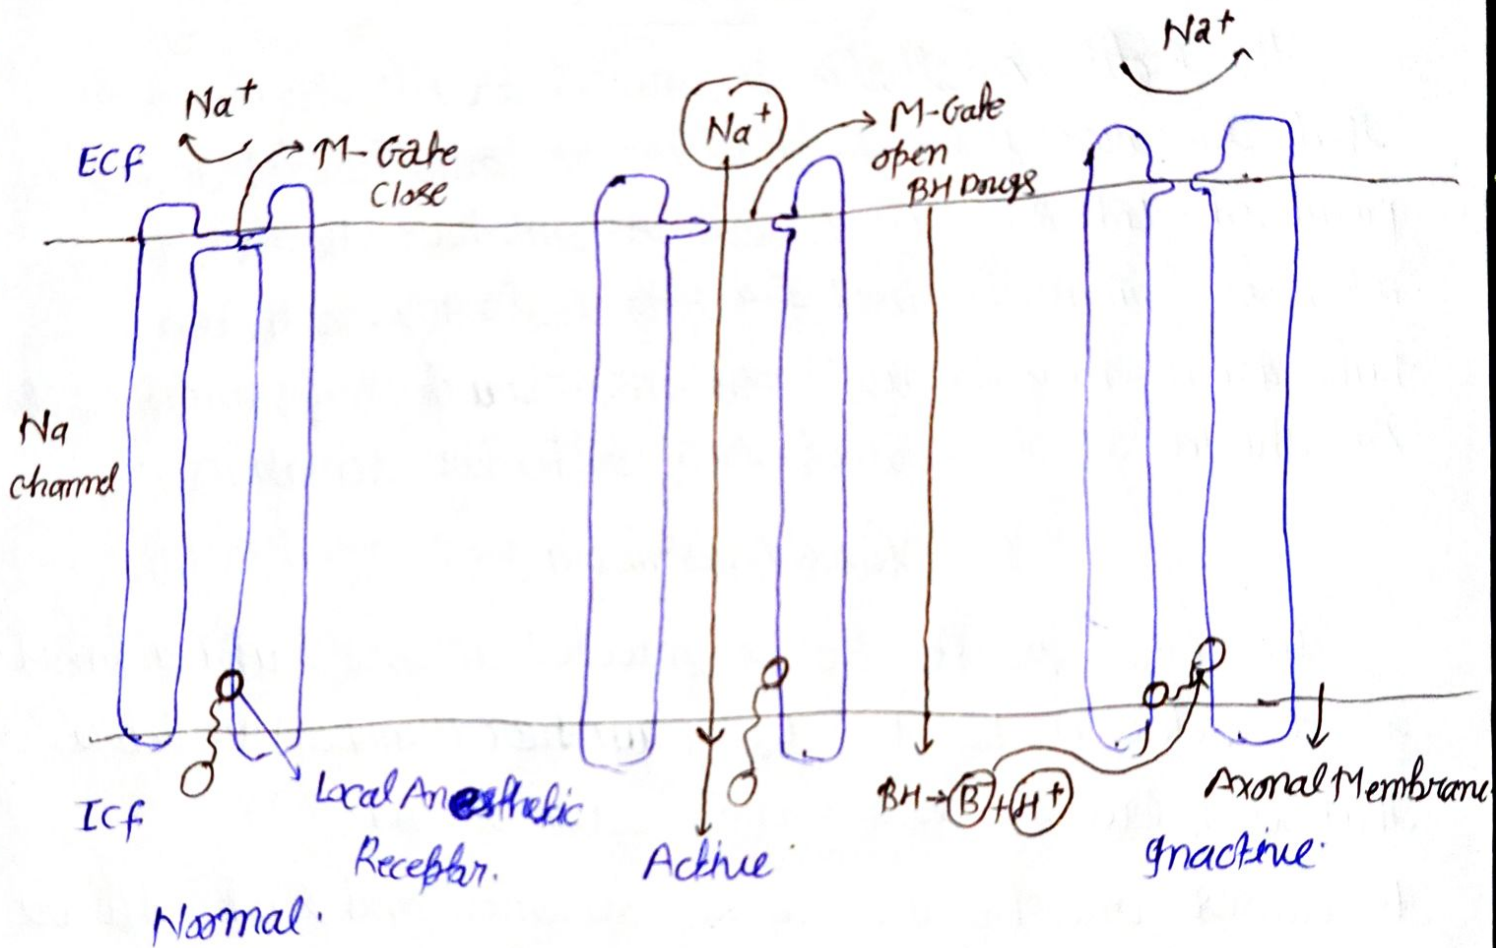 Na+
Na+
ECf
M-Gate
Close
Na+
M-Gate
open
BH Drugs
Na
channel
Local Anesthetic
Receptor.
ICf
Normal.
Active
BH→B+H+
Axonal Membrane
Inactive.